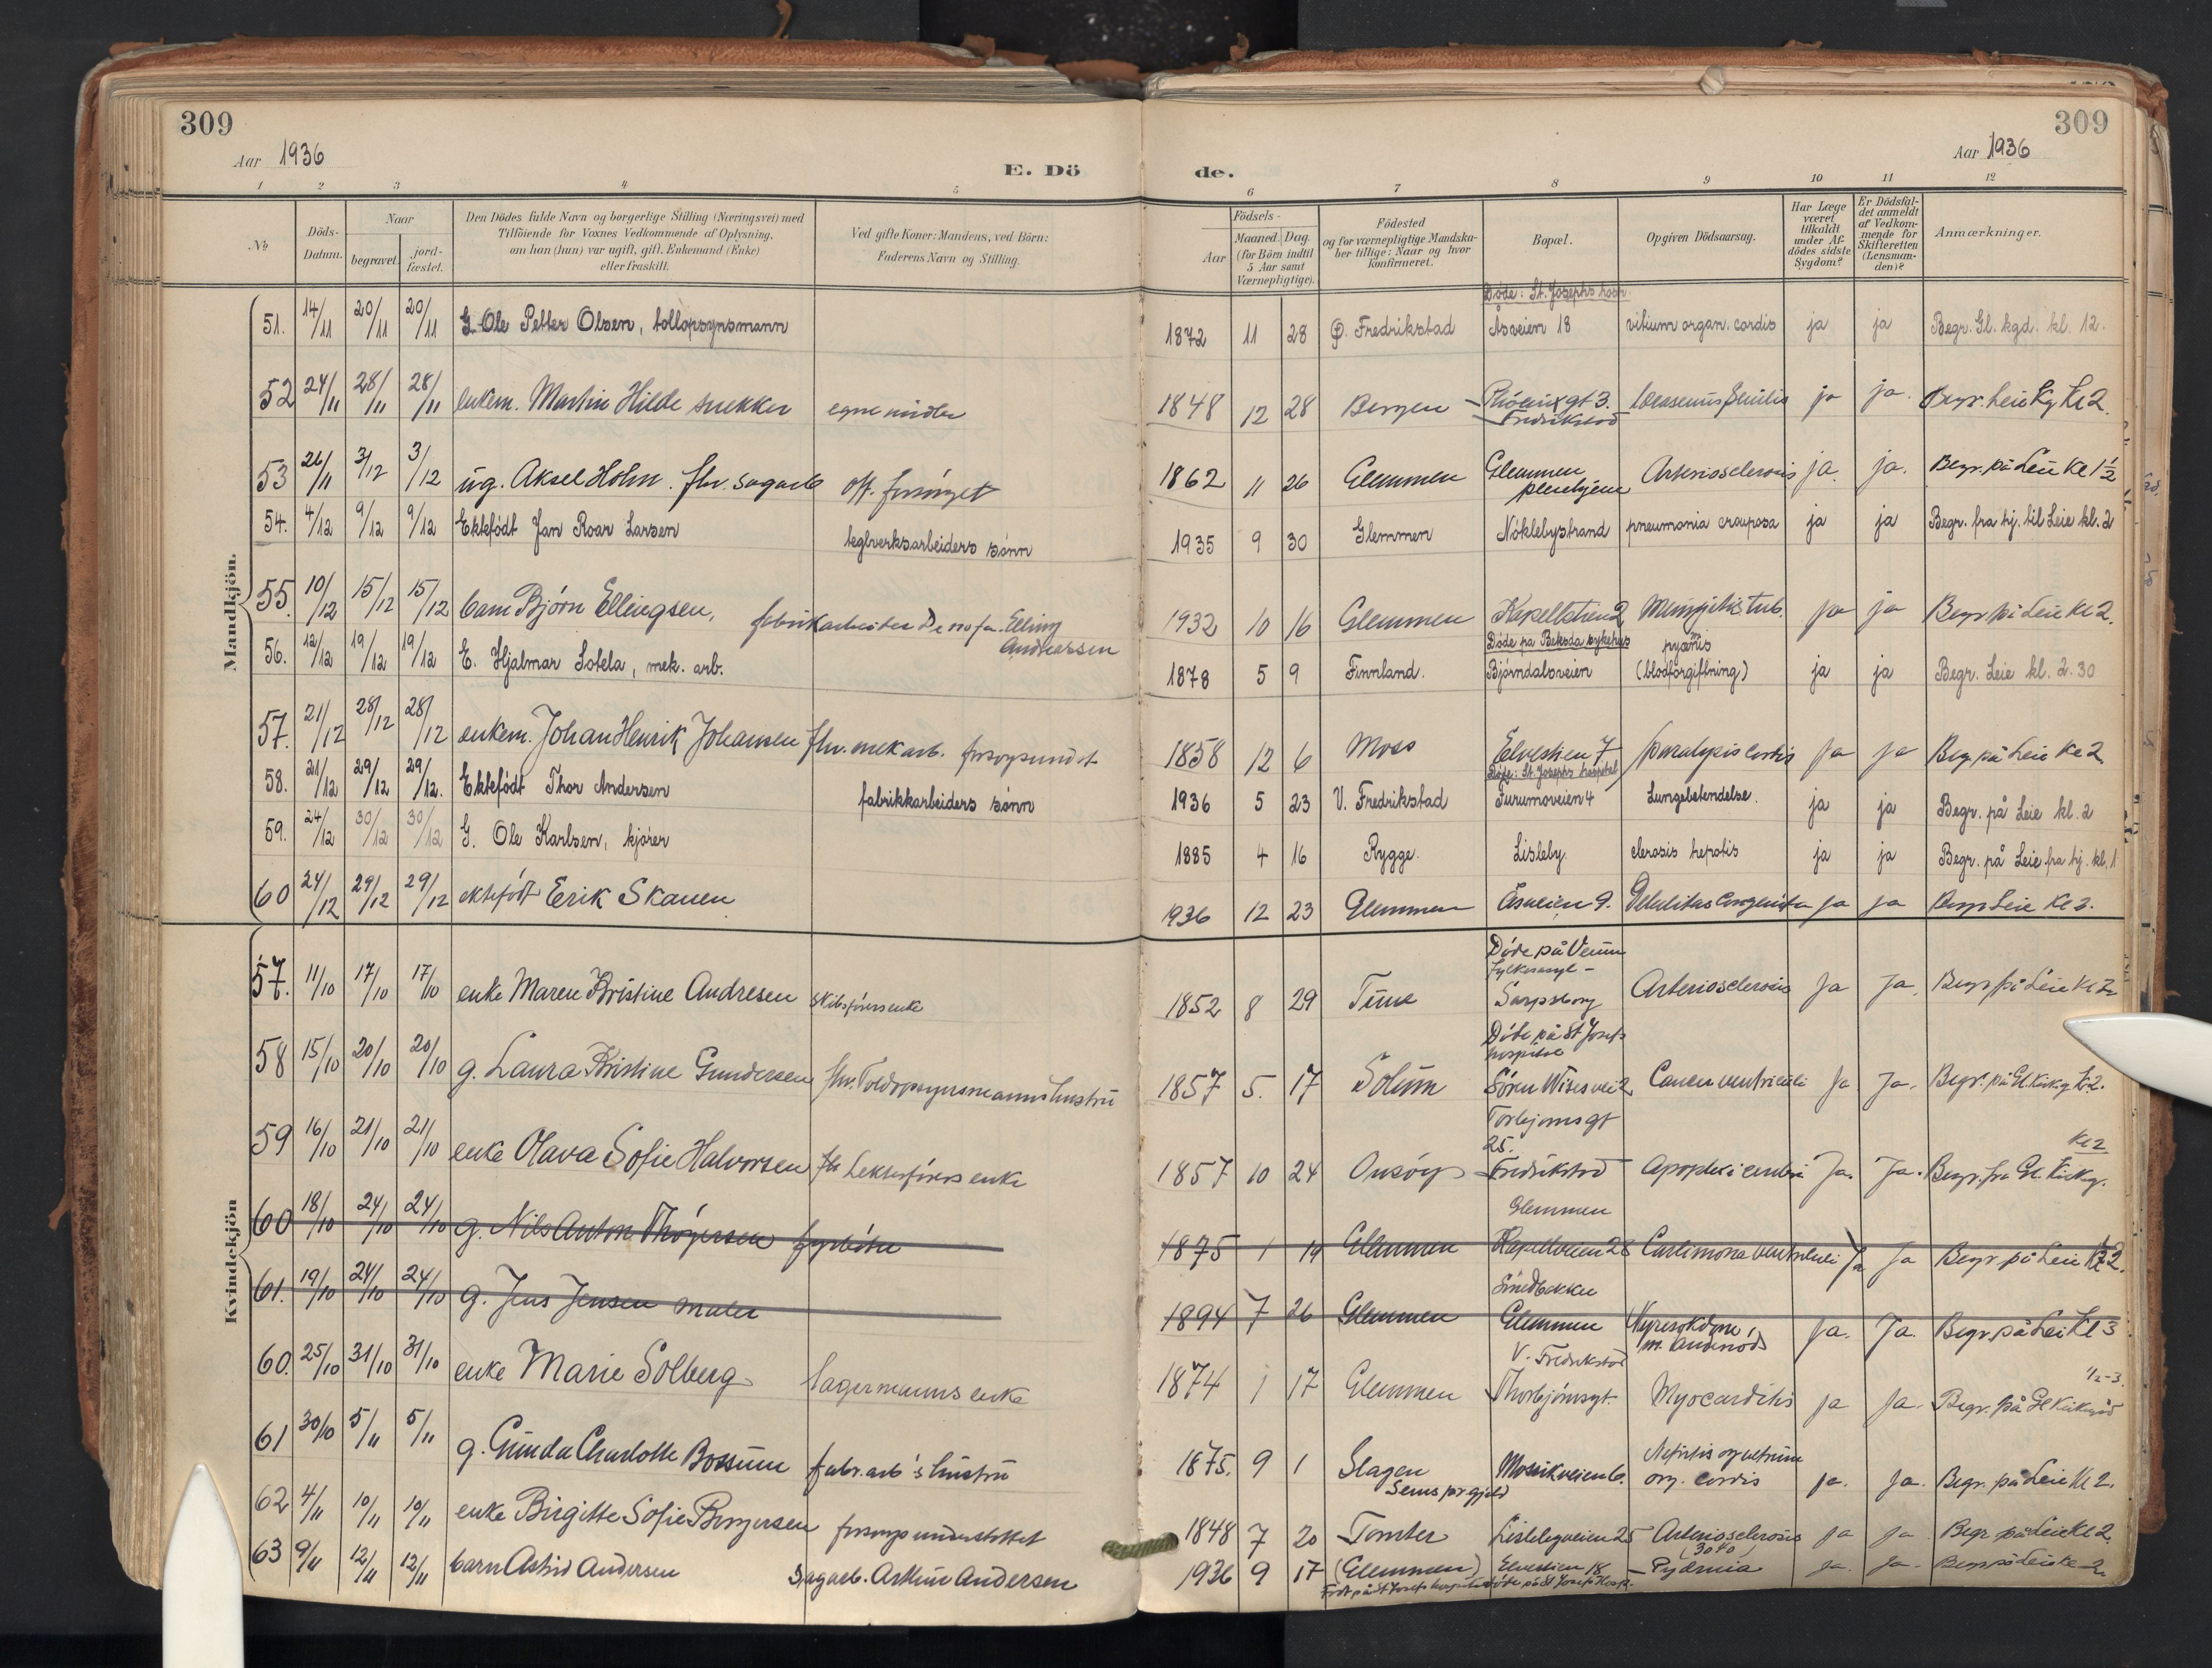 309
Aar 1936
E. Dö
de.
309
Aar 1936
1 2 3 4 5 6 7 8 9 10 11 12
No
Döds-Datum.
Naar
begravet.
jord-fæstet.
Den Dödes fulde Navn og borgerlige Stilling (Næringsvei) med
Tilföiende for Voxnes Vedkommende af Oplysning,
om han (hun) var ugift, gift, Enkemand (Enke)
eller fraskilt.
Ved gifte Koner: Mandens, ved Börn:
Faderens Navn og Stilling.
Födsels-
Aar
Maaned. Dag.
(for Börn indtil
5 Aar samt
Værnepligtige).
Födested
og for værnepligtige Mandska-
ber tillige: Naar og hvor
konfirmeret.
Bopæl.
Opgiven Dödsaarsag.
Har Læge
været
tilkaldt
under Af-
dödes sidste
Sygdom?
Er Dödsfal-
det anmeldt
af Vedkom-
mende for
Skifteretten
(Lensman-
den)?
Anmærkninger.
Mandkjön.
Döde: St. Josephs hosp.
51. 14/11 20/11 20/11 G. Ole Petter Olsen, tollopsynsmann 1872 11 28 Fredrikstad Åsveien 18 vitium organ. cordis ja ja Begr. Gl. kgd. kl. 12.
52 24/11 28/11 28/11 enkem. Martin Hilde snekker egne midler 1848 12 28 Bergen Phönixgt 3. Fredrikstad senilis ja ja. Begr. Leie Kl 2.
53 26/11 3/12 3/12 ug. Aksel Holm. fhv. sagarb off. forsörget 1862 11 26 Glemmen Glemmen pleiehjem Arteriosclerosis ja. ja. Begr. på Leie Kl 1½
54. 4/12 9/12 9/12 Ektefödt Jan Roar Larsen teglverksarbeiders sönn 1935 9 30 Glemmen Nöklebystrand pneumonia crouposa ja ja Begr. fra hj. til Leie kl. 2
55. 10/12 15/12 15/12 barn Björn Ellingsen, fabrikarbeider Denofa. Elling Andreassen 1932 10 16 Glemmen Kapellstien 2 Meningitis tub. ja ja Begr på Leie Kl 2.
Döde på Beksda sykehus
56. 12/12 19/12 19/12 E. Hjalmar Sotela, mek. arb. 1878 5 9 Finnland. Bjørndalsveien (blodforgiftning) ja ja Begr. Leie kl. 2.30
57. 21/12 28/12 28/12 enkem. Johan Henrik Johansen fhv. mek arb. forsorgsunderst 1858 12 6 Moss Elvestien 7 paralysis cordis ja ja Begr på Leie Kl 2
Döde: St. Josephs hospital
58. 21/12 29/12 29/12. Ektefödt Thor Andersen fabrikkarbeiders sönn 1936 5 23 V. Fredrikstad Furumoveien 4 Lungebetendelse. ja ja Begr. på Leie kl. 2
59. 24/12 30/12 30/12 G. Ole Karlsen, kjörer 1885 4 16 Rygge. Lisleby. clerosis hepatis ja ja Begr. på Leie fra hj. kl. 1
60 24/12 29/12 29/12 ektefödt Erik Skauen 1936 12 23 Glemmen Åsveien 9. Debilitas congenita ja ja Begr Leie Kl 2.
Kvindekjön
Döde på Veum
fylkesasyl -
57. 11/10 17/10 17/10 enke Maren Kristine Andresen skibsförers enke 1852 8 29 Tune Sarpsborg Arteriosclerosis Ja Ja. Begr på Leie Kl 2
Döde på St Josefs
hospital
58 15/10 20/10 20/10 g. Laura Kristine Gundersen fhv. Toldopsynsmanns hustru 1857 5. 17 Solum Sören Wisesvei 2 Cancer ventriculi Ja Ja. Begr. på Gl. Kirkeg kl. 2.
Torbjørnsgt
25.
59 16/10 21/10 21/10 enke Olava Sofie Halvorsen fhv Lekterförers enke 1857 10 24 Onsöy Fredrikstad apoplexi cerebri Ja. Ja. Begr. fra Gl. Kirkeg. Kl 2
Glemmen
60 18/10 24/10 24/10 g. Nils Anton Thögersen fyrböter 1875 1 19 Glemmen Kapellveien 28 Carcinoma ventriculi Ja Ja Begr. på Leie Kl 2.
Smedbakken
61. 19/10 24/10 24/10 g. Jens Jensen maler 1894 7 26 Glemmen Glemmen Nyresykdom Ja. Ja. Begr. på Leie Kl 3
V. Fredrikstad
60. 25/10 31/10 31/10 enke Marie Solberg lagermanns enke 1874 1 17 Glemmen Thorbjörnsgt. Myocarditis ja Ja. Begr. på Gl Kirkegård ½-3.
61 30/10 5/11 5/11 g. Gunda Charlotte Bossum fabr. arb's hustru 1875. 9 1 Slagen Sems prgjeld Mosikveien 6. Nefritis og vitium org. cordis ja. Ja. Begr. på Leie Kl 2.
62 4/11 10/11 10/11 enke Birgitte Sofie Borgersen forsorgsunderstöttet 1848 7 20 Tomter Lislebyveien 25 Arteriosclerosis ja ja. Begr på Leie Kl 2.
63 9/11 12/11 12/11 barn Astrid Andersen Sagarb. Arthur Andersen 1936 9 17 (Glemmen) Elvestien 18 Pydrmia ja. Ja. Begr på Leie Kl 2
Födt på St Josefs hospital döde på St Josefs Hosp.